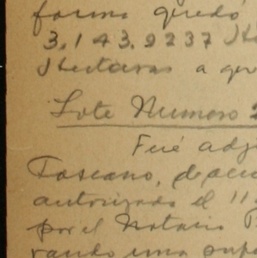 forma quedó
3,143.9237 He
Hectareas a que
Lote Numero 2
Fué adj
Toscano, de acu
autorizado el 11
por el Notario P
rando una supe